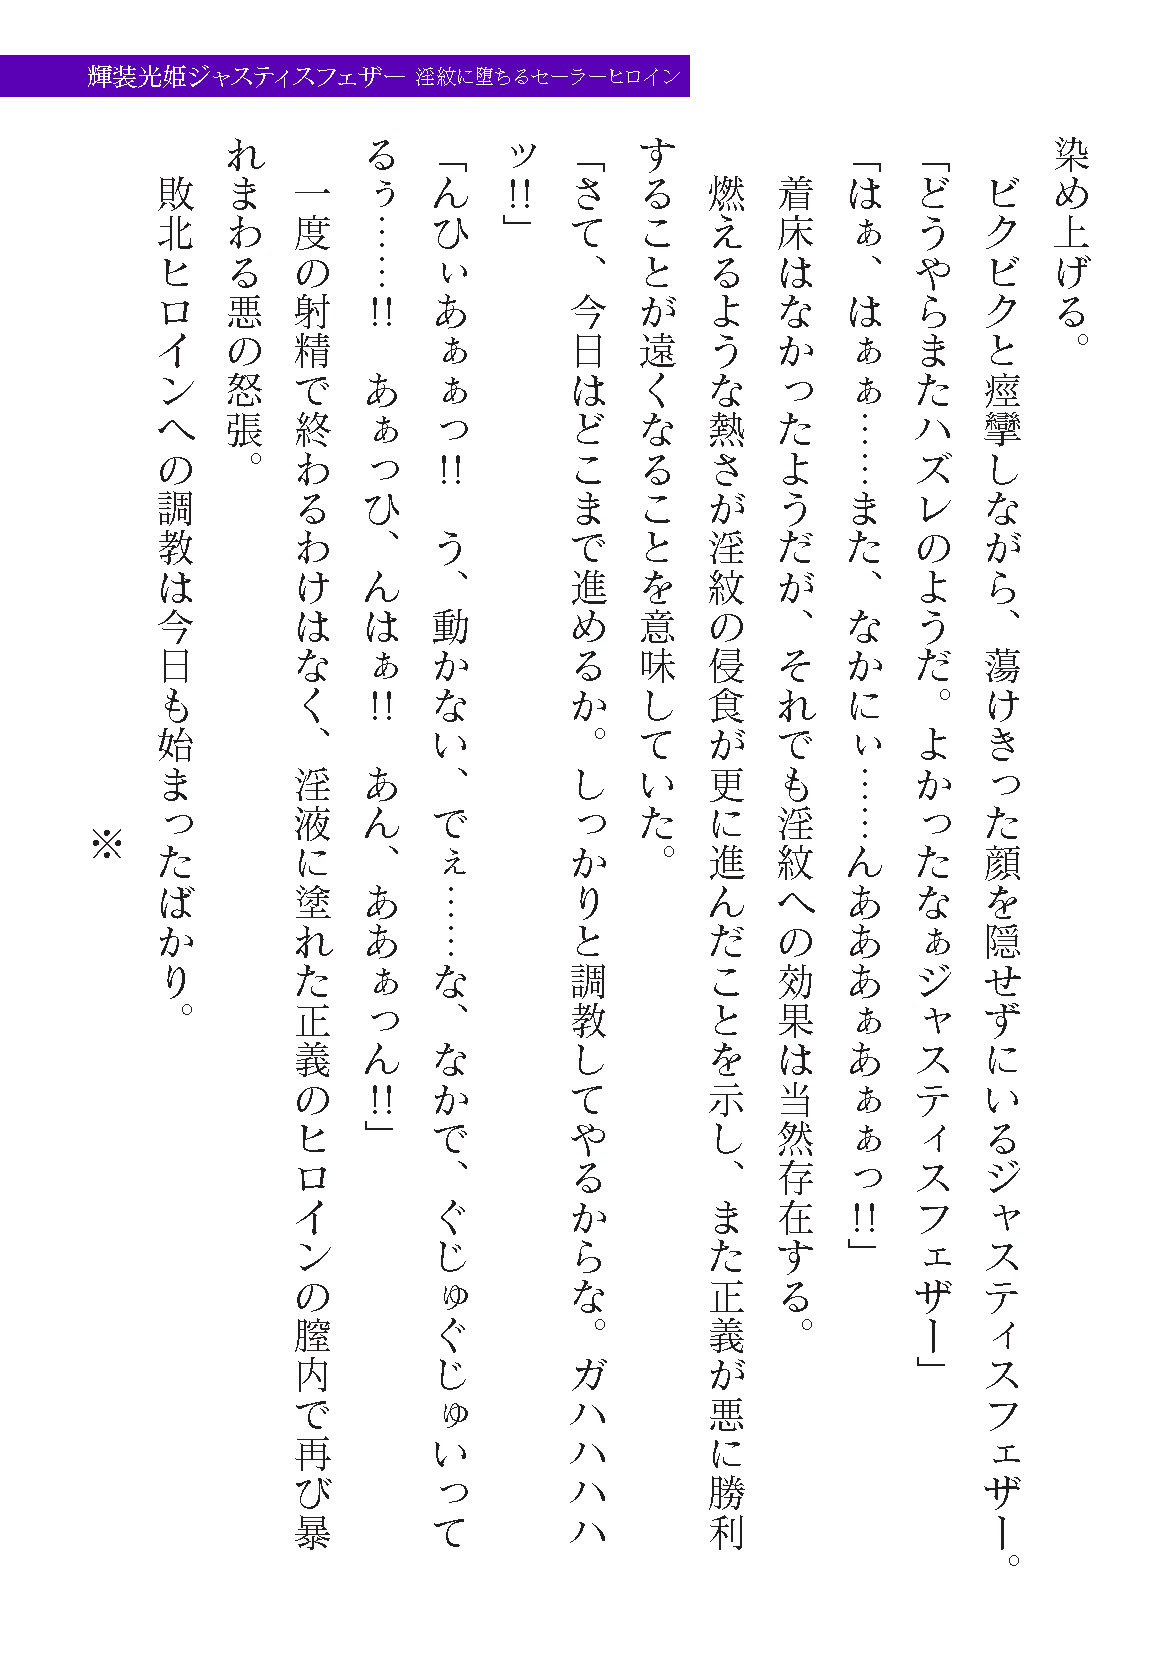 輝装光姫ジャスティスフェザー 淫紋に堕ちるセーラーヒロイン
染め上げる。
　ビクビクと痙攣しながら、蕩けきった顔を隠せずにいるジャスティスフェザー。
「どうやらまたハズレのようだ。よかったなぁジャスティスフェザー」
「はぁ、はぁぁ……また、なかにぃ……んあああぁあぁぁっ!!」
　着床はなかったようだが、それでも淫紋への効果は当然存在する。
　燃えるような熱さが淫紋の侵食が更に進んだことを示し、また正義が悪に勝利
することが遠くなることを意味していた。
「さて、今日はどこまで進めるか。しっかりと調教してやるからな。ガハハハハ
ッ!!」
「んひぃあぁぁっ!!　う、動かない、でぇ……な、なかで、ぐじゅぐじゅいって
るぅ……!!　あぁっひ、んはぁ!!　あん、ああぁっん!!」
　一度の射精で終わるわけはなく、淫液に塗れた正義のヒロインの膣内で再び暴
れまわる悪の怒張。
　敗北ヒロインへの調教は今日も始まったばかり。
※